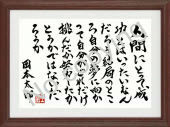 人間にとって成
功とはいったいなん
だろう結局のとこ
ろ自分の夢に向か
って自分がどれだけ
挑んだか努力したか
どうかではないだ
ろうか
岡本太郎